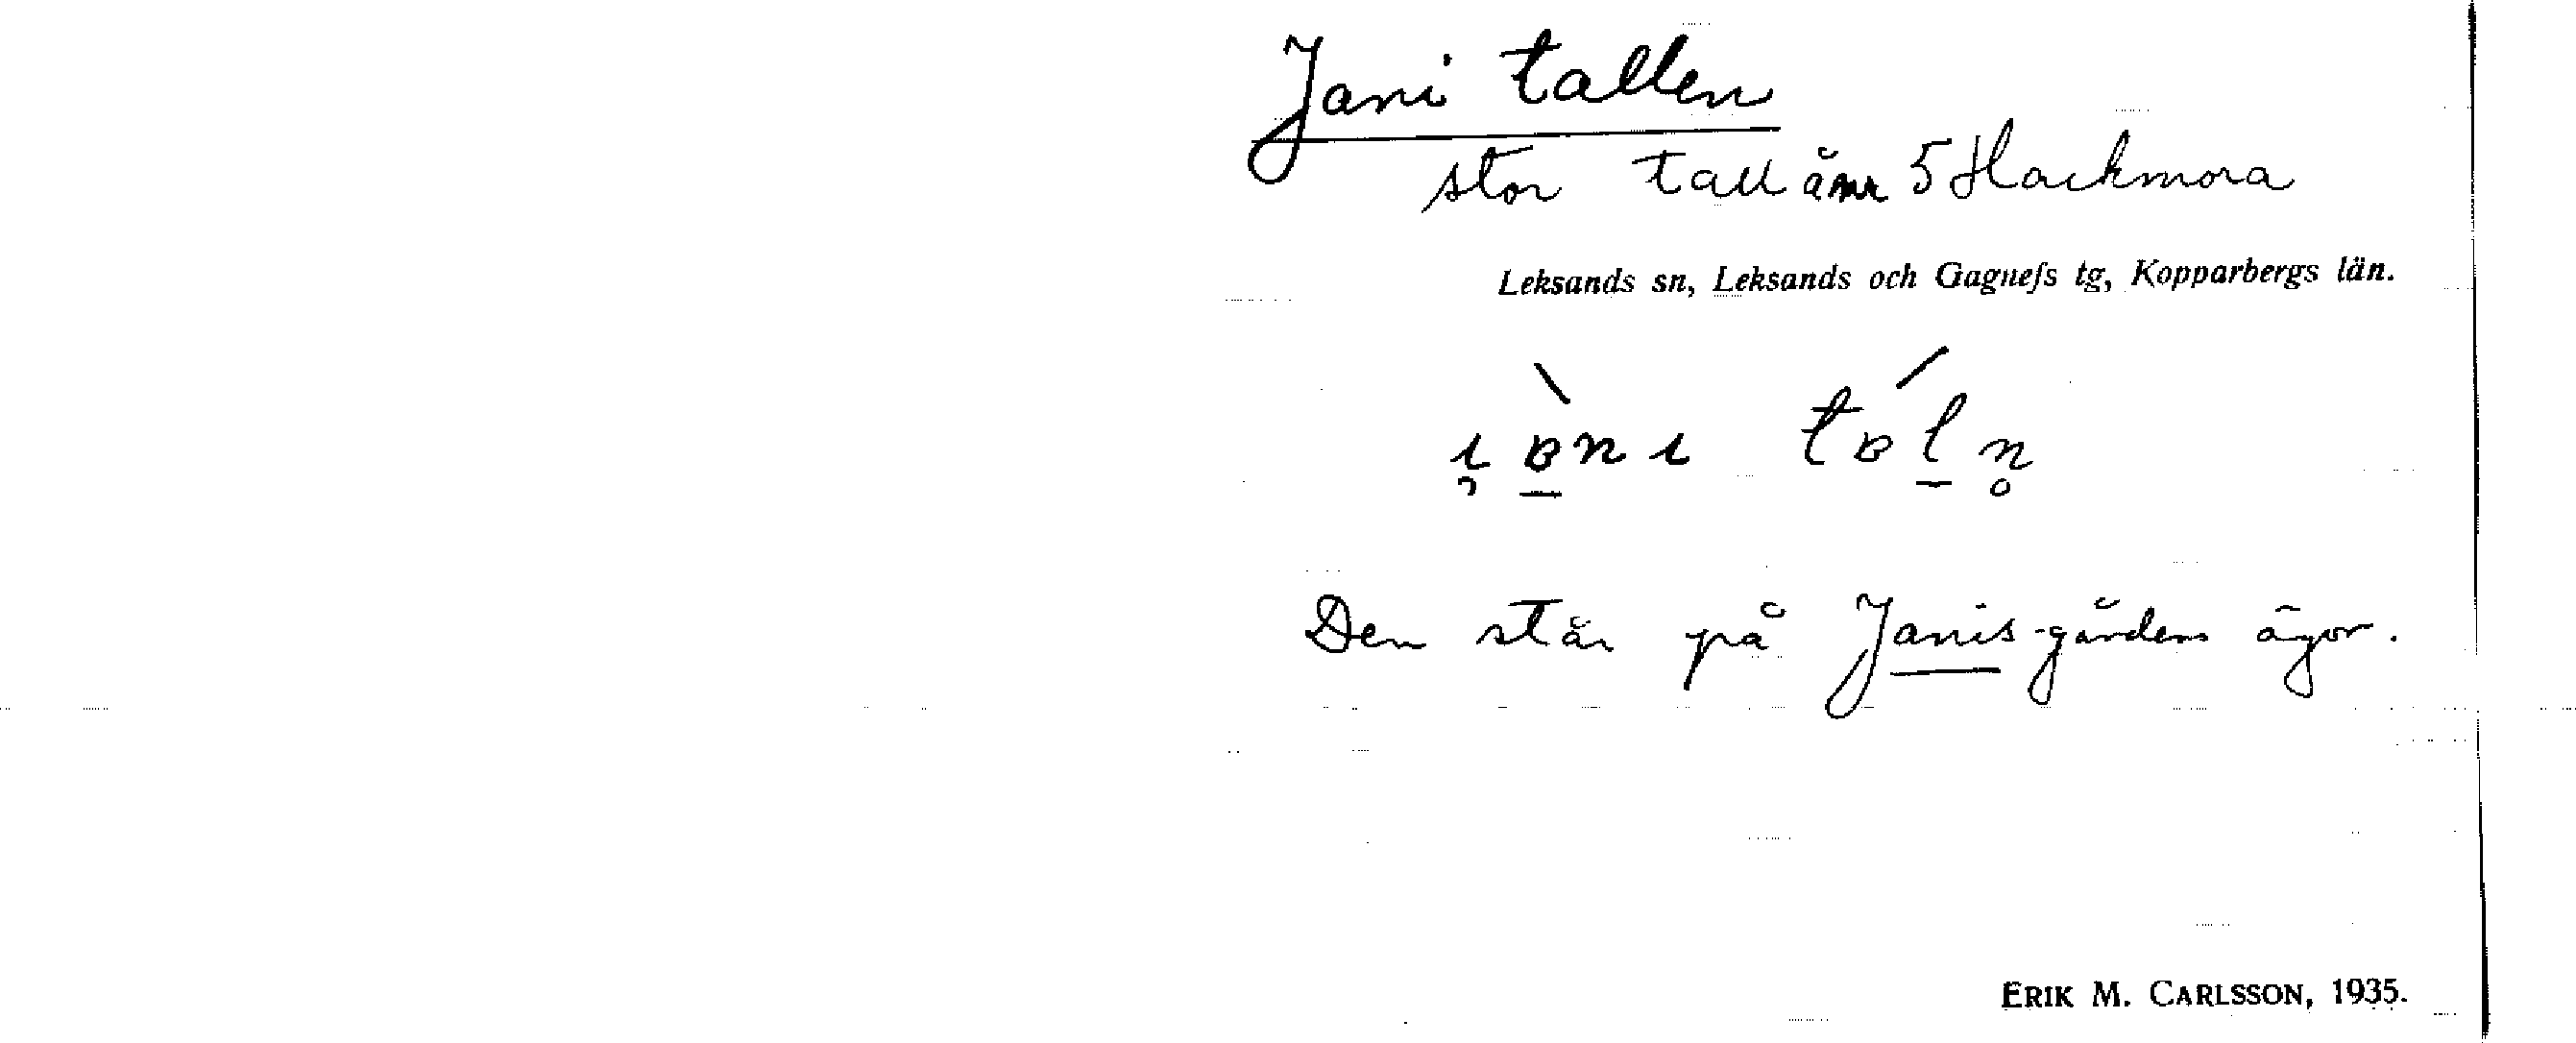 Jani tallen
stor tall å nr 5 Hackmora
Leksands sn, Leksands och Gagnefs tg, Kopparbergs län.
Den står på Janis-gårdens ägor.
ERIK M. CARLSSON, 1935.